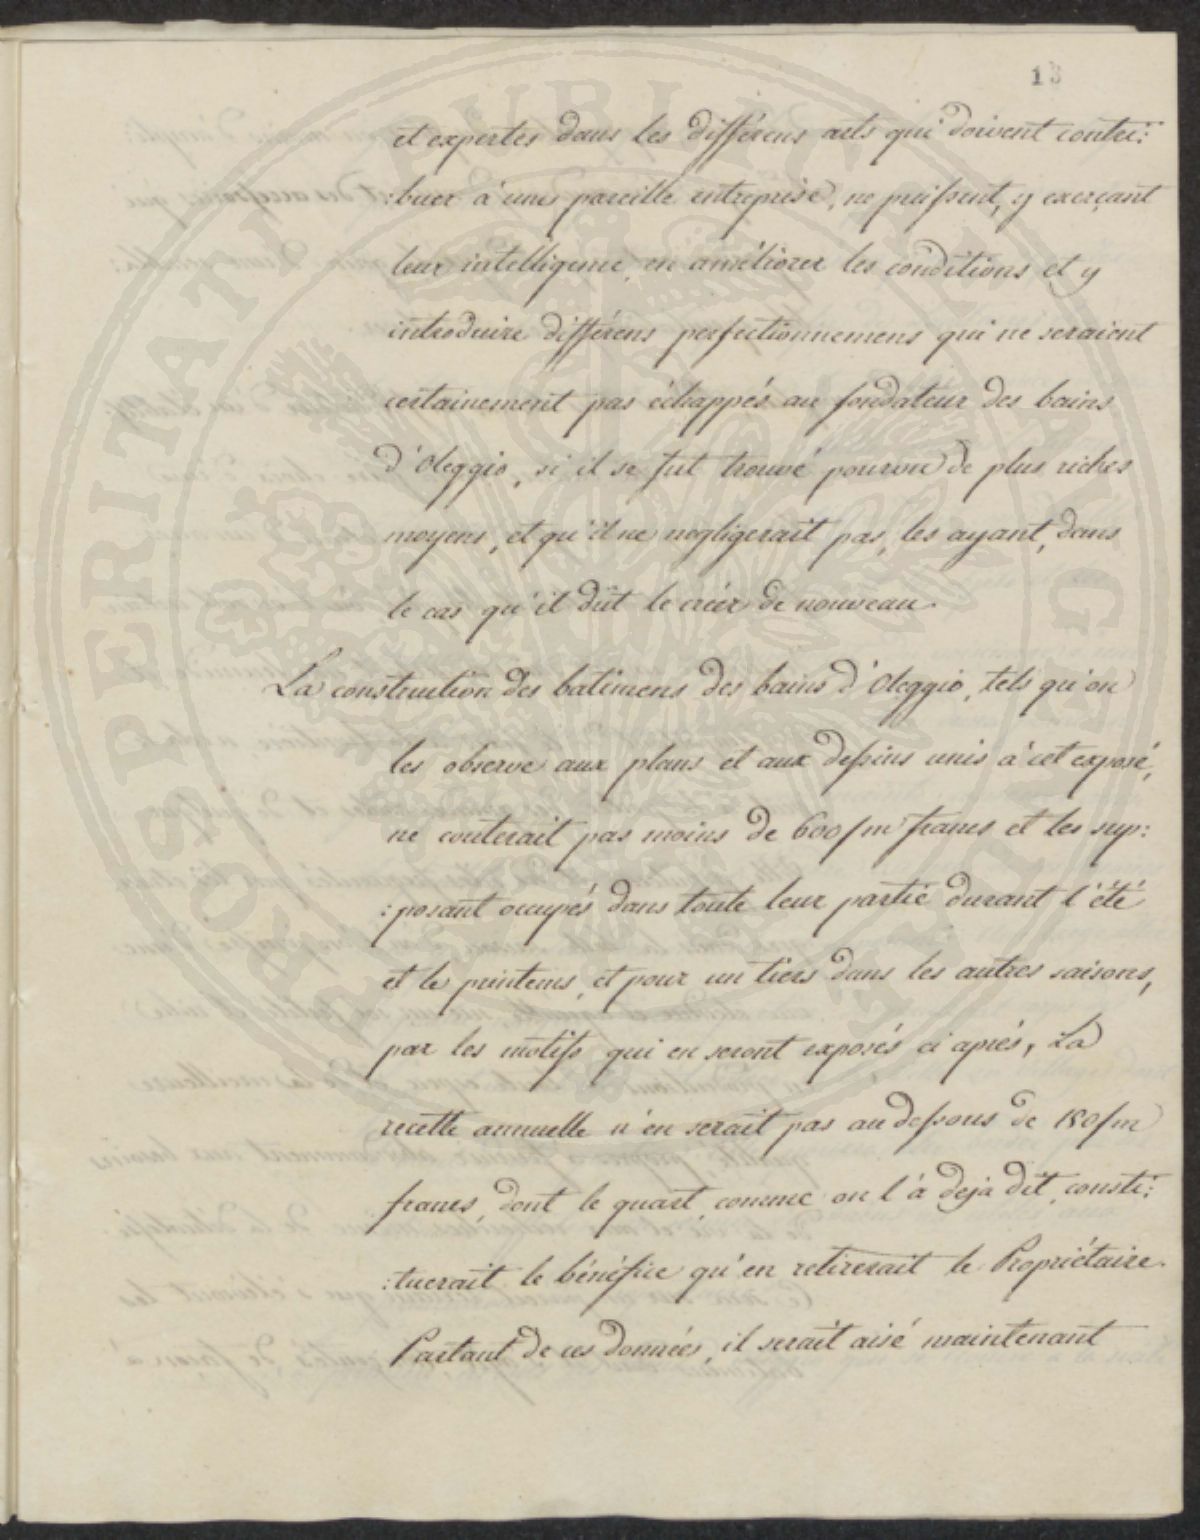 13
et expertes dans les différens arts qui doivent contri:
:buer à une pareille entreprise, ne puissent, y exerçant
leur intelligence, en améliorer les conditions et y
introduire différens perfectionnemens qui ne seraient
certainement pas échappés au fondateur des bains
d'Oleggio, si il se fut trouvé pourvu de plus riches
moyens, et qu'il ne negligerait pas, les ayant, dans
le cas qu'il dût le créer de nouveau.
La construction des batimens des bains d'Oleggio, tels qu'on
les observe aux plans et aux dessins unis à cet exposé,
ne couterait pas moins de 600/m francs et les sup:
:posant occupés dans toute leur partie durant l'été
et le printems, et pour un tiers dans les autres saisons,
par les motifs qui en seront exposés ci après, La
recette annuelle n'en serait pas au dessous de 180/m
francs, dont le quart, comme on l'à deja dit, consti:
:tuerait le bénéfice qu'en retirerait le Propriétaire.
Partant de ces données, il serait aisé maintenant
PROSPERITATI PUBLICAE AUGENDAE